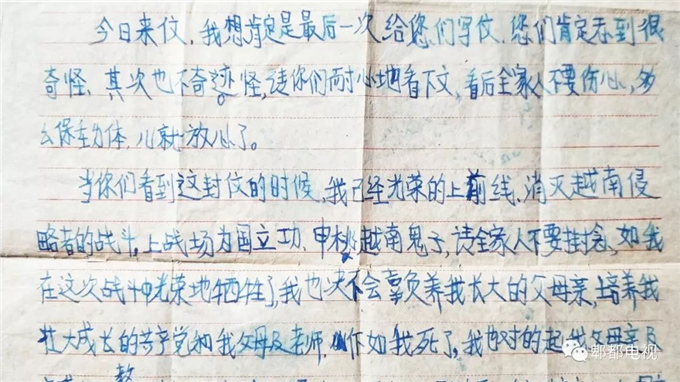 今日来仪,我想肯定是最后一次,给您们写仪,您们肯定看到很
奇怪,其次也不奇迹怪,读你们耐心地看下文,看后全家人不要伤心,多
么保重身体,儿就放心了。
当你们看到这封仪的时候,我已经光荣的上前线,消灭越南侵
略者的战斗,上战场为国立功,申桃越南鬼子,请全家人不要挂念,如我
在这次战斗中光荣地牺牲了,我也决不会辜负养我长大的父母亲,培养我
壮大成长的共产党和我父母及老师,作如我死了,我也对的起 父母亲及
教
郫都电视